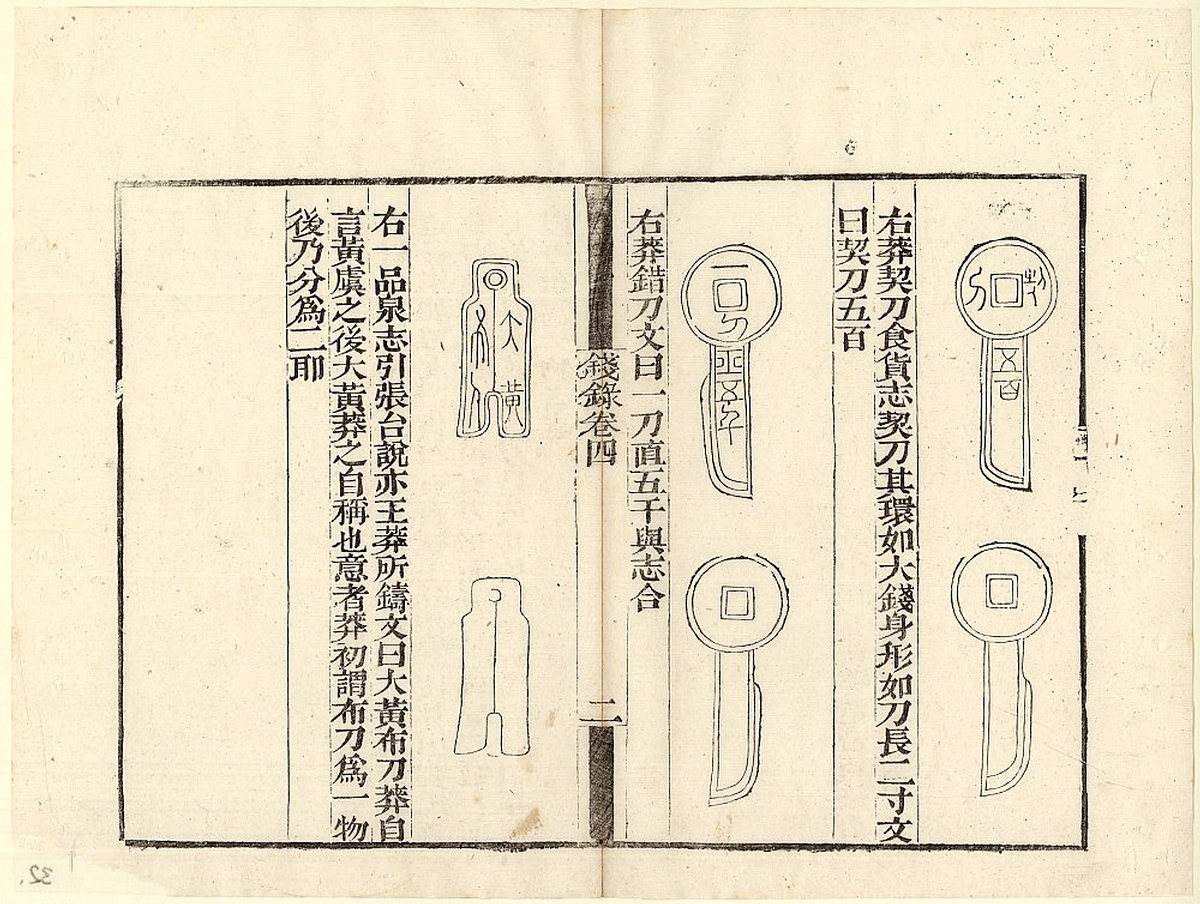 五百
右莽契刀食貨志契刀其環如大錢身形如刀長二寸文
曰契刀五百
一刀
平五千
右莽錯刀文曰一刀直五千與志合
錢錄卷四
二
大黃
布刀
右一品泉志引張台說亦王莽所鑄文曰大黃布刀莽自
言黃虞之後大黃莽之自稱也意者莽初謂布刀為一物
後乃分為二耶
32.